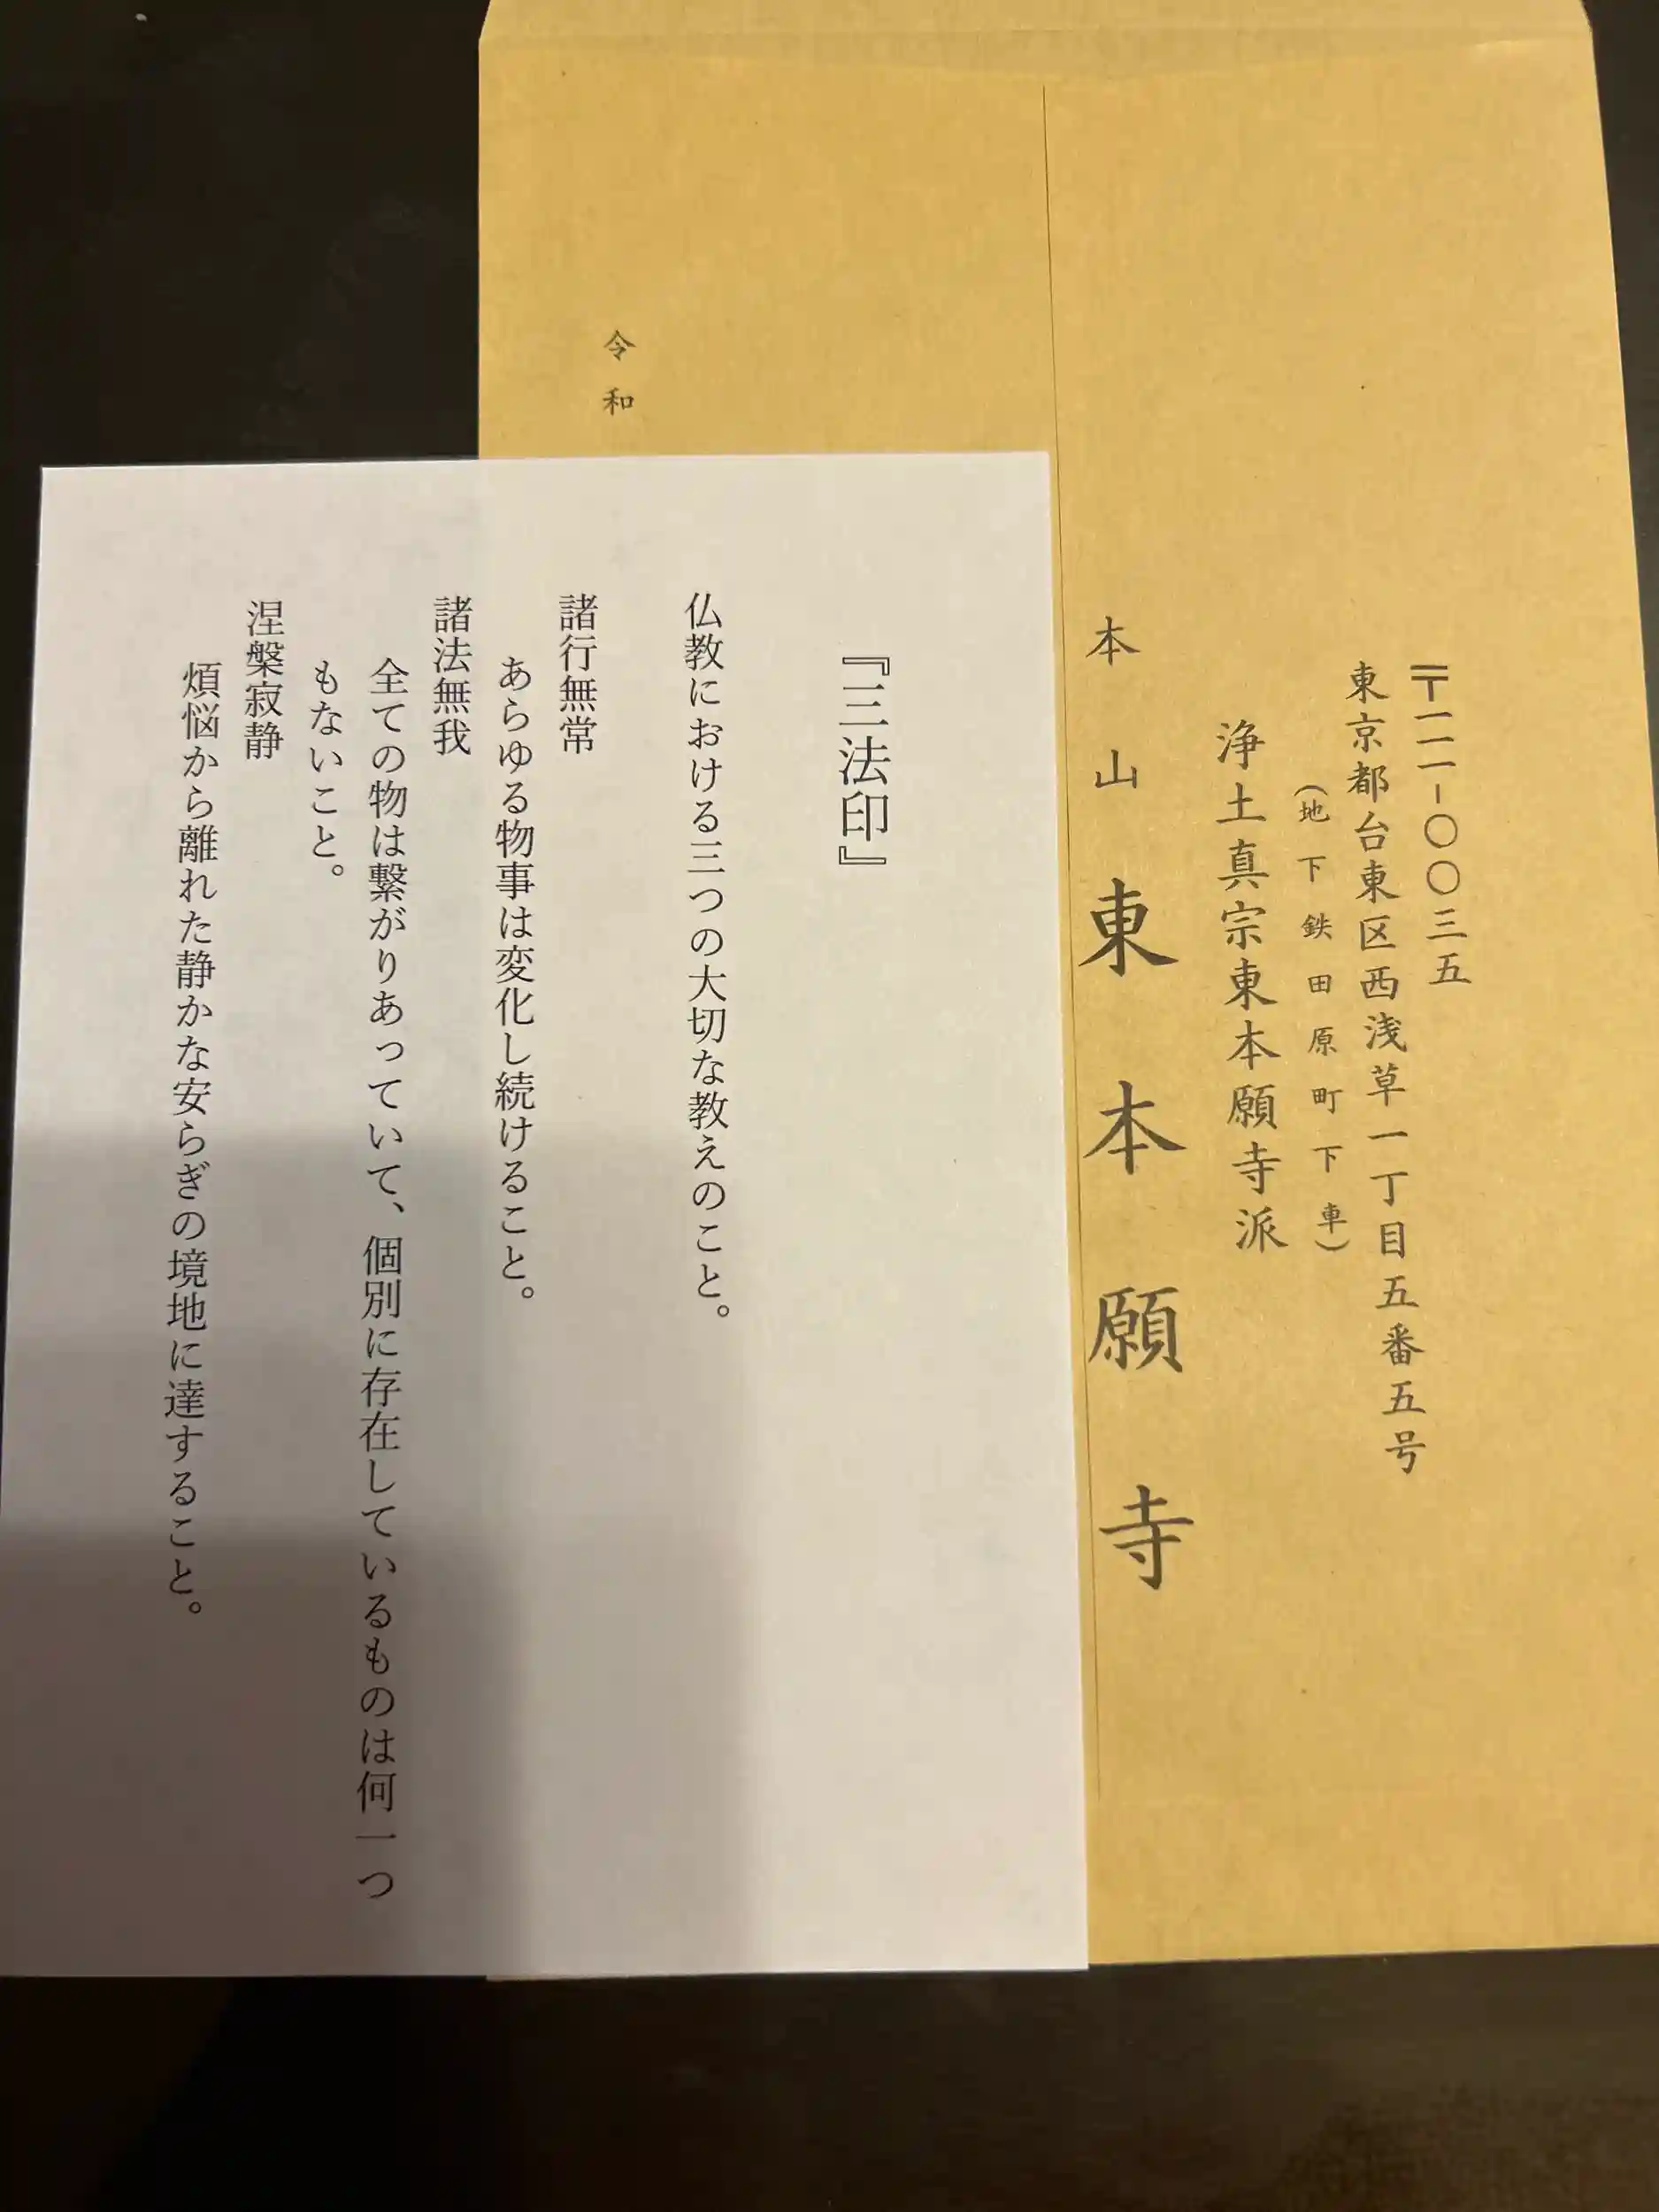 〒一一一-〇〇三五
東京都台東区西浅草一丁目五番五号
(地下鉄田原町下車)
浄土真宗東本願寺派
本山東本願寺
令和
『三法印』
仏教における三つの大切な教えのこと。
諸行無常
あらゆる物事は変化し続けること。
諸法無我
全ての物は繋がりあっていて、個別に存在しているものは何一つ
もないこと。
涅槃寂静
煩悩から離れた静かな安らぎの境地に達すること。